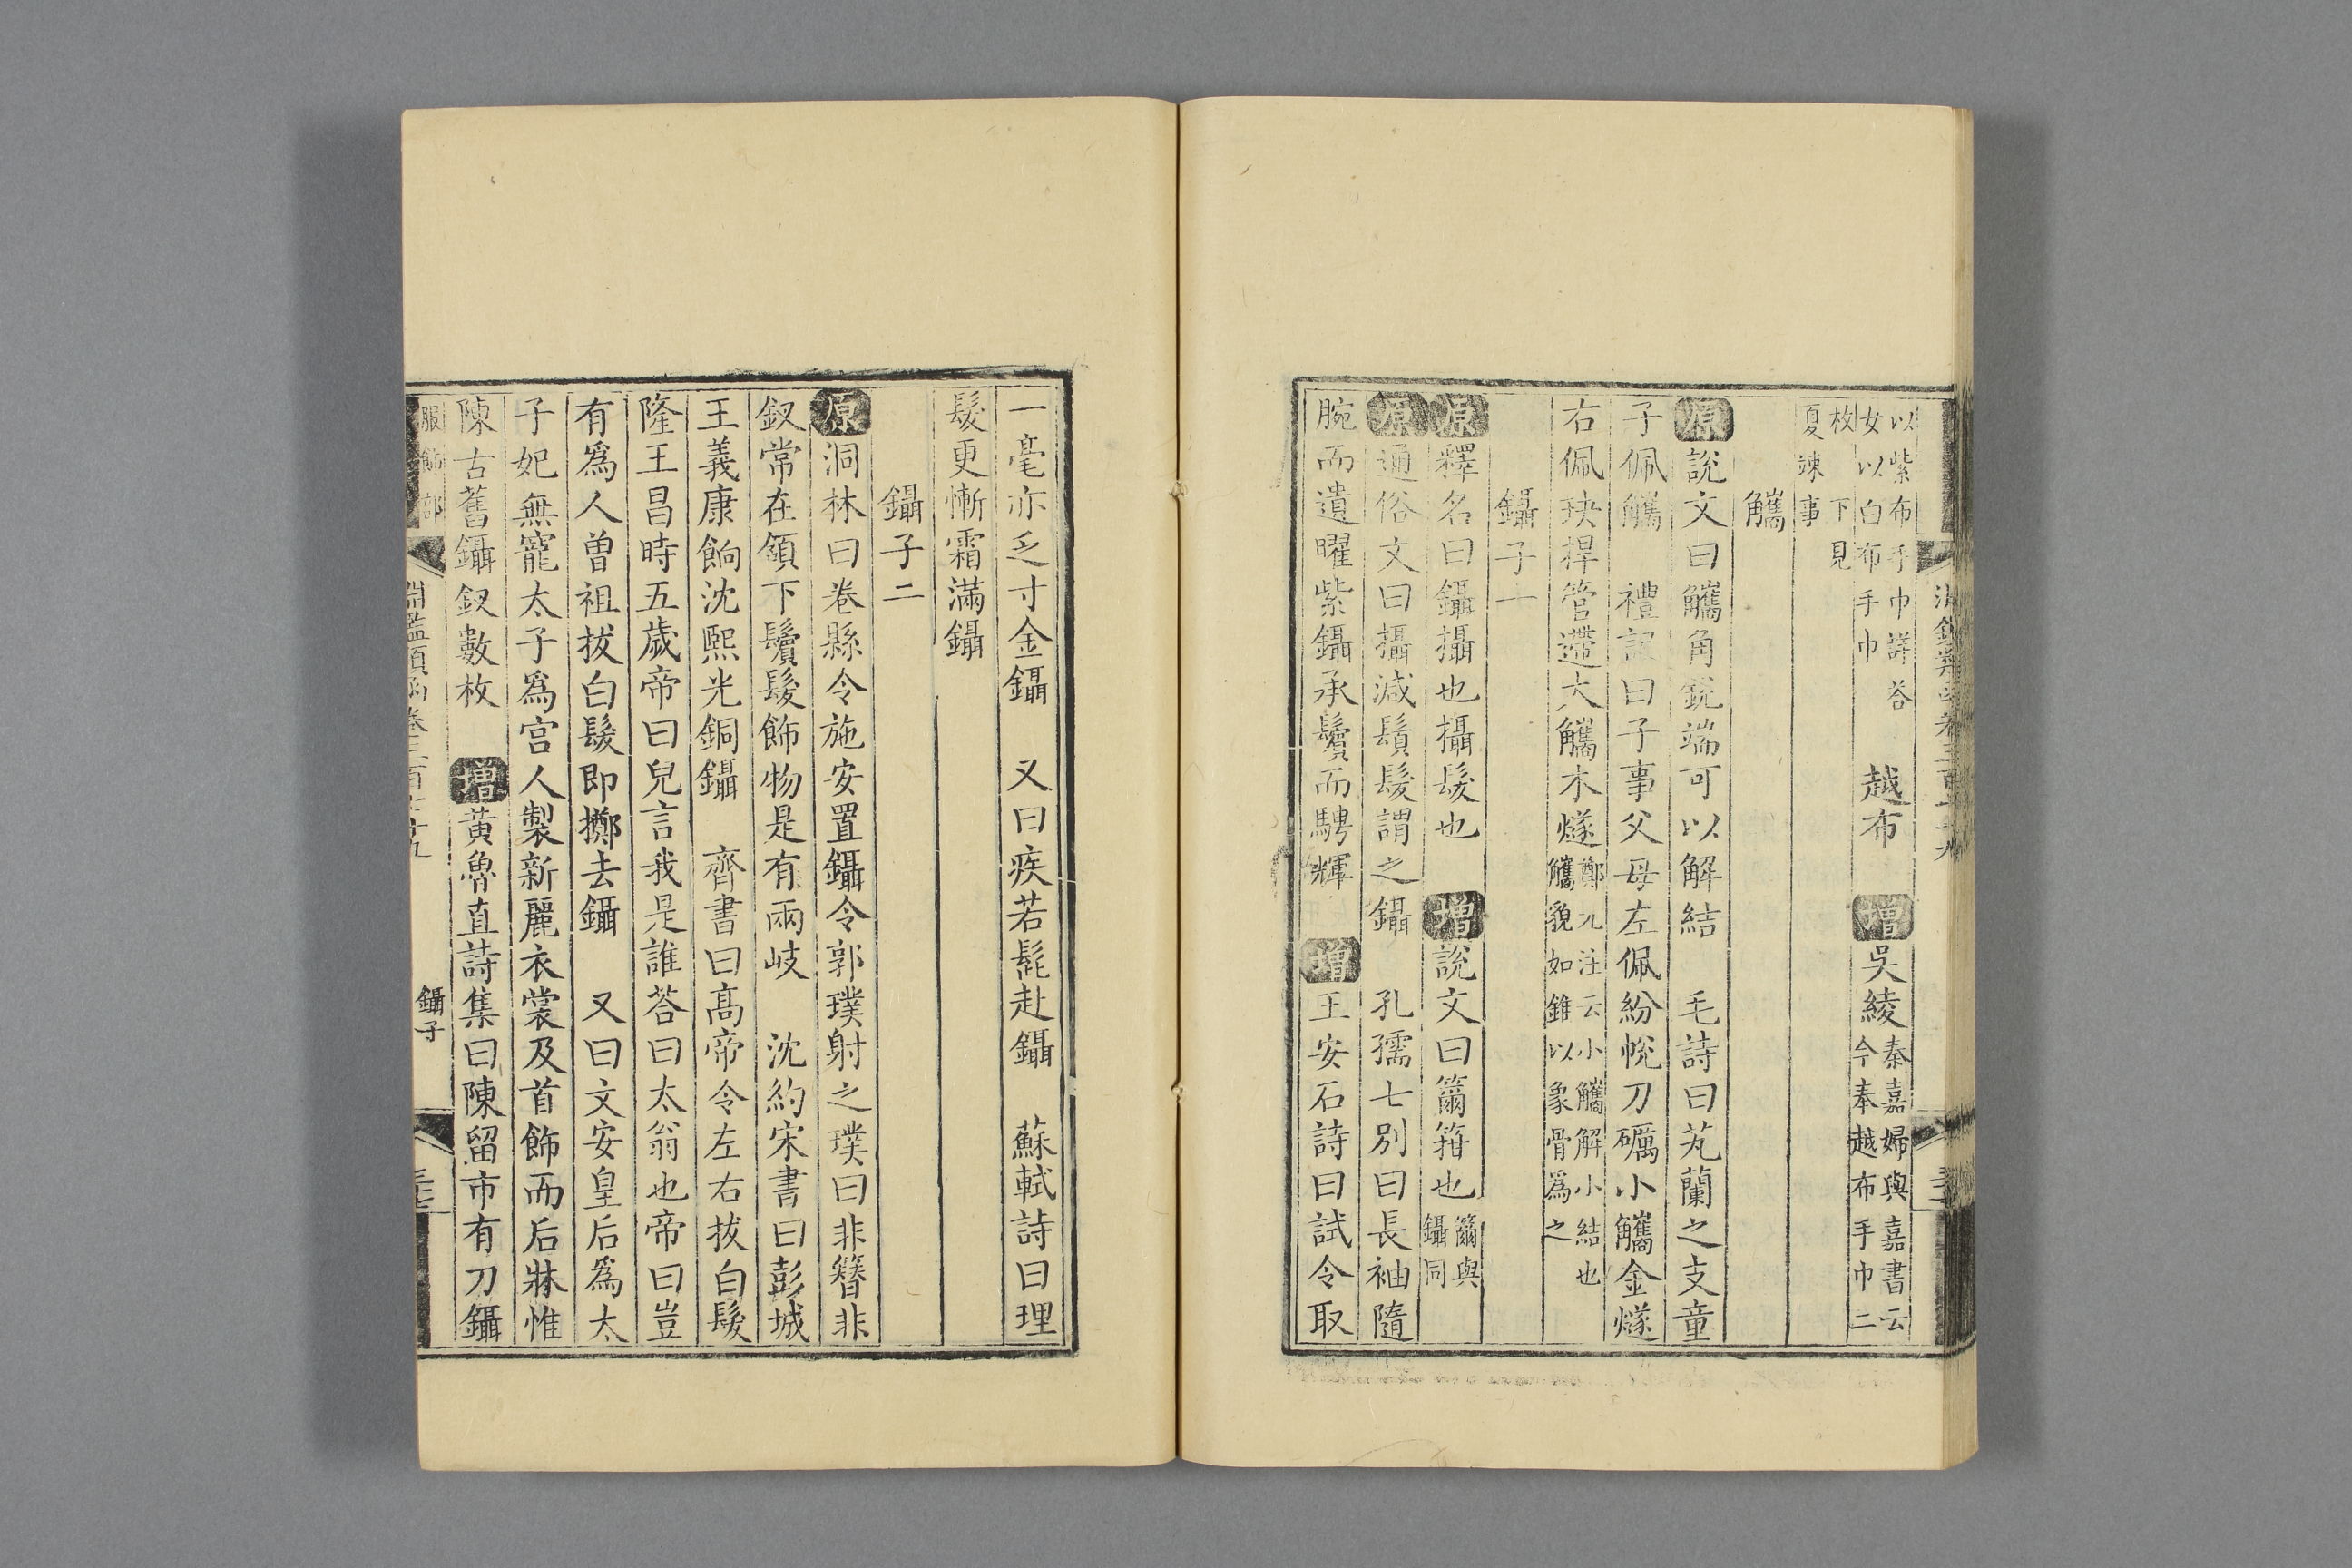 以紫布手巾詳荅
女以白布手巾
越布
增吳綾
秦嘉婦與嘉書云
今奉越布手巾二
枚下見
夏竦事
觿
原說文曰觿角銳端可以解結 毛詩曰芄蘭之支童
子佩觿 禮記曰子事父母左佩紛帨刀礪小觿金燧
右佩玦捍管遰大觿木燧
鄭元注云小觿解小結也
觿貌如錐以象骨為之
鑷子一
原釋名曰鑷攝也攝髮也 增說文曰籋箝也
籋與
鑷同
原通俗文曰攝減鬚髮謂之鑷 孔孺七別曰長袖隨
腕而遺曜紫鑷承鬢而騁輝 增王安石詩曰試令取
一毫亦乏寸金鑷 又曰疾若髭赴鑷 蘇軾詩曰理
髮更慚霜滿鑷
鑷子二
原洞林曰卷縣令施安置鑷令郭璞射之璞曰非簪非
釵常在領下鬢髮飾物是有兩岐 沈約宋書曰彭城
王義康餉沈熙光銅鑷 齊書曰高帝令左右拔白髮
隆王昌時五歲帝曰兒言我是誰荅曰太翁也帝曰豈
有爲人曾祖拔白髮即擲去鑷 又曰文安皇后爲太
子妃無寵太子爲宮人製新麗衣裳及首飾而后牀惟
陳古舊鑷釵數枚 增黃魯直詩集曰陳留市有刀鑷
服飾部
淵鑑類函卷三百七十九
鑷子